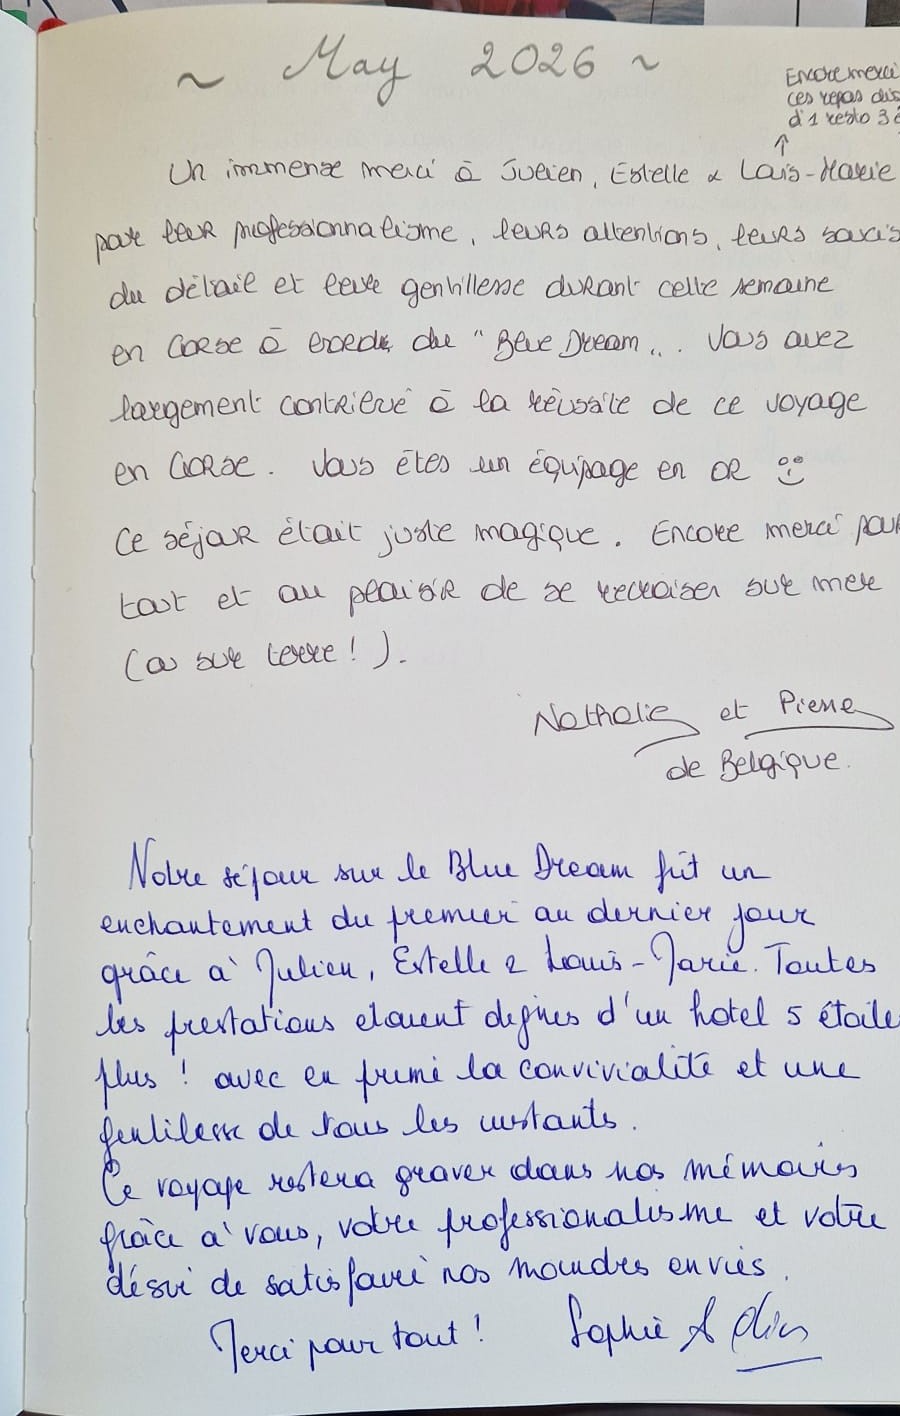 ~ May 2026 ~
Encore merci
ces repas dis
d'1 resto 3 é
Un immense merci à Julien, Estelle & Louis-Marie
pour leur professionnalisme, leurs attentions, leurs soucis
du détail et leur gentillesse durant cette semaine
en Corse à bord du "Blue Dream". Vous avez
largement contribué à la réussite de ce voyage
en Corse. Vous êtes un équipage en OR
Ce séjour était juste magique. Encore merci pour
tout et au plaisir de se recroiser sur mer
(ou sur terre!).
Nathalie et Pierre
de Belgique.
Notre séjour sur le Blue Dream fût un
enchantement du premier au dernier jour
grâce à Julien, Estelle & Louis-Marie. Toutes
les prestations etaient dignes d'un hotel 5 étoile
plus ! avec en prime la convivialité et une
gentillesse de tous les instants.
Ce voyage restera graver dans nos mémoires
grâce à vous, votre professionnalisme et votre
désir de satisfaire nos moindres envies.
Merci pour tout! Sophie &